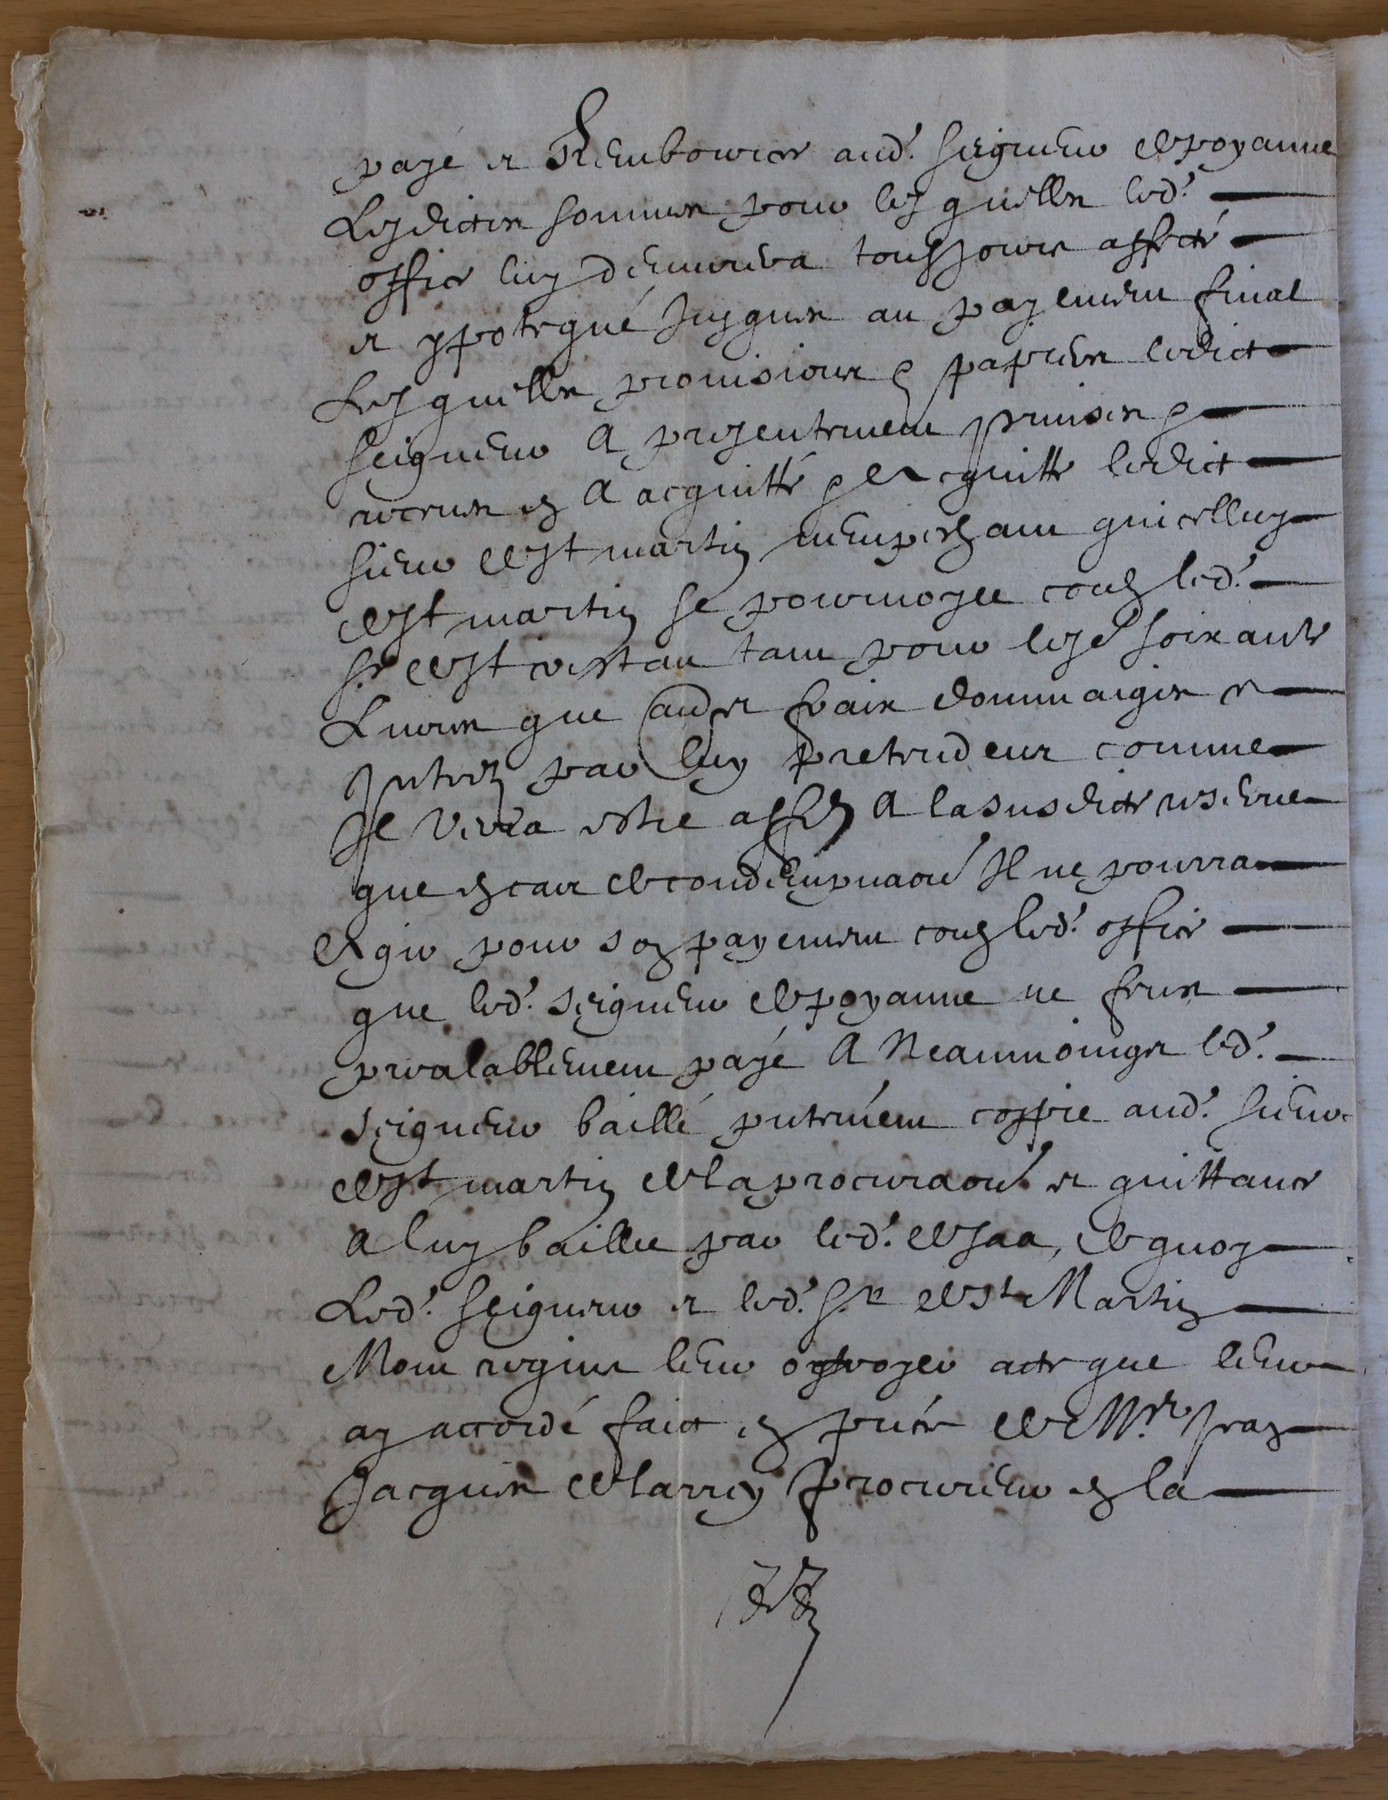 payé et Rembourcer aud. seigneur de poyanne
Lesdictes sommes pour lesquelles led.
office luy demurera tousjours affecté
et ypotequé jusques au payement final
Lesquelles provisions & papiers ledict
seigneur a presentement prinses &
receues en a acquitté & acquitte ledict
sieur de st martin neumpechant quicelluy
de st martin se pourvoyee contre led.
sr de st cristau tant pour lesd. soixante
Livres que aud. et frais dommaiges et
Interetz par luy pretendeus comme
Il verra estre affe a la susdicte reserve
que en cas de condempnaõn Il ne pourra
Agir pour son payement contre led. office
que led. seigneur de poyanne ne feust
prealablement payé A Neanmoinges led.
seigneur baillé pntement coppie aud. sieur
de st martin de la procuraõn et quittance
a luy baillee par led. de saa, de quoy
Led. seigneur et led. sr de st Martin
Mont requis leur octroyer acte que leur
ay accordé faict en pnce de Mre Jean
Jacques de larrey procureur en la